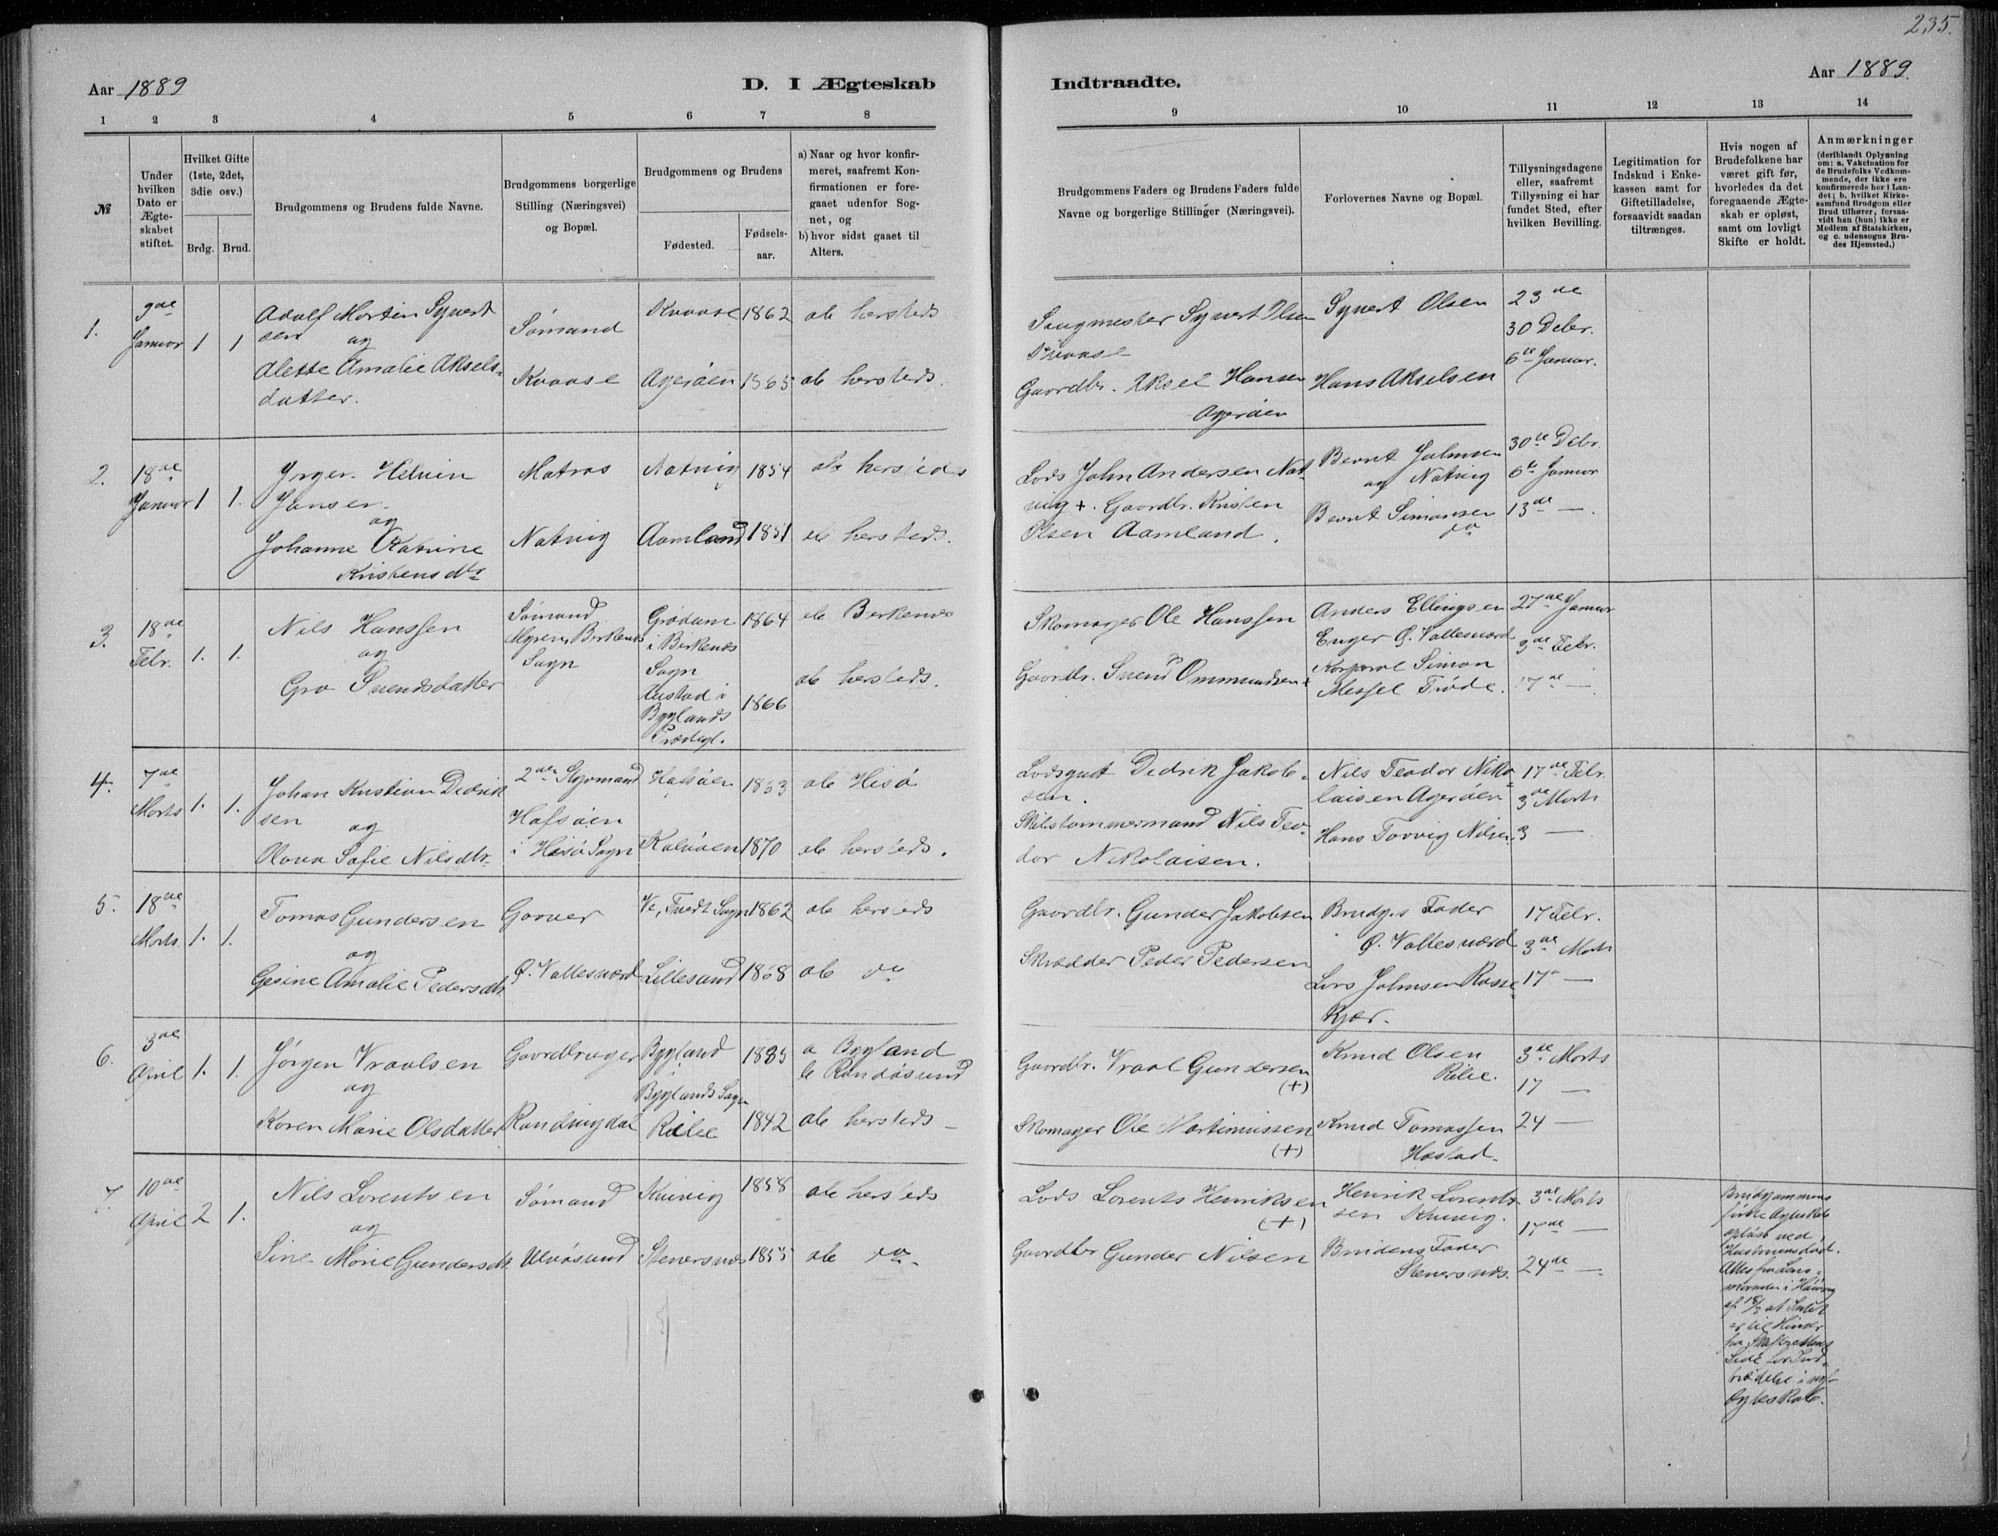 235.
Aar 1889
D. I Ægteskab
Indtraadte.
Aar 1889.
1 2 3 4 5 6 7 8 9 10 11 12 13 14
№
Under hvilken Dato er Ægteskabet stiftet.
Hvilket Gifte (1ste, 2det, 3die osv.)
Brdg. Brud.
Brudgommens og Brudens fulde Navne.
Brudgommens borgerlige Stilling (Næringsvei) og Bopæl.
Brudgommens og Brudens
Fødested.
Fødsels-aar.
a) Naar og hvor konfirmeret, saafremt Konfirmationen er foregaaet udenfor Sognet, og
b) hvor sidst gaaet til Alters.
Brudgommens Faders og Brudens Faders fulde Navne og borgerlige Stillinger (Næringsvei).
Forlovernes Navne og Bopæl.
Tillysningsdagene eller, saafremt Tillysning ei har fundet Sted, efter hvilken Bevilling.
Legitimation for Indskud i Enkekassen samt for Giftetilladelse, forsaavidt saadan tiltrænges.
Hvis nogen af Brudefolkene har været gift før, hvorledes da det foregaaende Ægteskab er opløst, samt om lovligt Skifte er holdt.
Anmærkninger
(deriblandt Oplysning om: a. Vakcination for de Brudefolks Vedkommende, der ikke ere konfirmerede her i Landet; b. hvilket Kirkesamfund Brudgom eller Brud tilhører, forsaavidt han (hun) ikke er Medlem af Statskirken, og c. udensogns Brudes Hjemsted.)
1. 9de Januar 1 1
Adolf Morten Syvert
sen
og
Alette Amalie Aksels-
datter.
Sømand
Kvaase
Kvaase 1862 ab hersteds
Agerøen 1865 ab hersteds.
Saugmester Syvert Olsen
Kvaase
Gaardbr. Aksel Hansen
Agerøen
Syvert Olsen
Hans Akselsen
23de
30 Debr.
6te Januar.
2. 18de Januar 1 1.
Jansen
og
Johanne Katrine
Kristensdtr
Matros
Natvig
Natvig 1854 ab hersteds
Aamland 1851 ab hersteds.
Lods John Andersen Nat
vig +. Gaardbr. Kristen
Olsen Aamland.
Bernt Johnsen
og Natvig
Bernt Simonsen
do
30te Debr.
6te Januar
13de —.
3. 18de Febr. 1. 1.
Nils Hanssen
og
Gro Svendsdatter
Sømand
Myren, Birkenes
Sogn
Grødum
i Birkenes
Sogn
1864 ab Birkenes
i
Byglands
Prædegt.
1866
ab hersteds.
Skomager Ole Hanssen
Gaardbr. Svend Ommundsen
Anders Ellingsen
Enger Ø. Vallesværd
Korporal Simon
Messel Trøde.
27de Januar
3de Febr.
17de —
4. 7de Marts 1. 1.
Johan Kristian Didrik
sen
og
Olava Sofie Nilsdtr.
2den Styrmand
Hafsøen
i Hisø Sogn
Hafsøen 1863 ab Hisø
Kalvøen 1870 ab hersteds.
Didrik Jakob-
sen.
Skibstømmermand Nils Teo-
dor Nikolaisen.
Nils Teodor Niko
laisen Agerøen
Hans Torvig Nilsen
17de Febr.
3de Marts
3 —
5. 18de Marts. 1. 1.
Tomas Gundersen
og
Gesine Amalie Pedersdtr.
Garver
Ø. Vallesværd
Ve, Tvedt Sogn 1862 ab hersteds
Lillesand 1868 ab do
Gaardbr. Gunder Jakobsen
Skrædder Peder Pedersen
Brudg.s Fader
Ø. Vallesværd
Lars Johnsen Rosse
kjær.
17 Febr.
3de Marts
17 —
6. 3de April 1. 1.
Jørgen Vraalsen
og
Karen Marie Olsdatter
Gaardbruger
Bygland
Byglands Sogn
1835
a Bygland
b Randøsund
Rilie 1842 ab hersteds
Gaardbr. Vraal Gundersen
(+)
Skomager Ole Martinussen
(+)
Knud Olsen
Rilie.
Knud Tomassen
Hæstad.
3de Marts
17 —
24 —
7. 10de April 2 1.
Nils Lorentsen
og
Sine Marie Gundersdtr
Sømand
Ulvøsund
Kvivig 1858 ab hersteds
Stenersnæs 1855 ab do.
Lods Lorents Henriksen
(+)
Gaardbr Gunder Nilsen
Henrik Lorents-
sen Kvivig.
Brudens Fader
Stenersnæs.
3de Marts
17de —
24de —
Brudgommens
første Ægteskab
opløst ved
Hustruens død.
Attest fra Lens-
manden i Høivåg
af 18/3 at Intet
er til Hinder
fra Skifterettens
Side for Ind-
trædelse i nyt
Ægteskab.